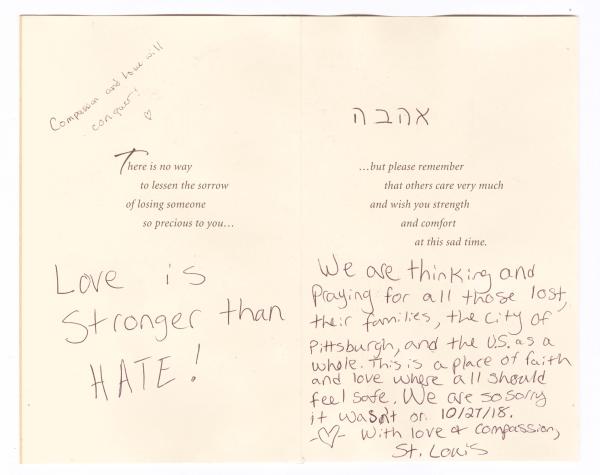 Compassion and love will
conquer! ♡
There is no way
to lessen the sorrow
of losing someone
so precious to you...
Love is
Stronger than
HATE!
אהבה
...but please remember
that others care very much
and wish you strength
and comfort
at this sad time.
We are thinking and
Praying for all those lost,
their families, the city of
Pittsburgh, and the U.S. as a
whole. This is a place of faith
and love where all should
feel safe. We are so sorry
it wasn't on 10/27/18.
-♡- With love & compassion,
St. Louis